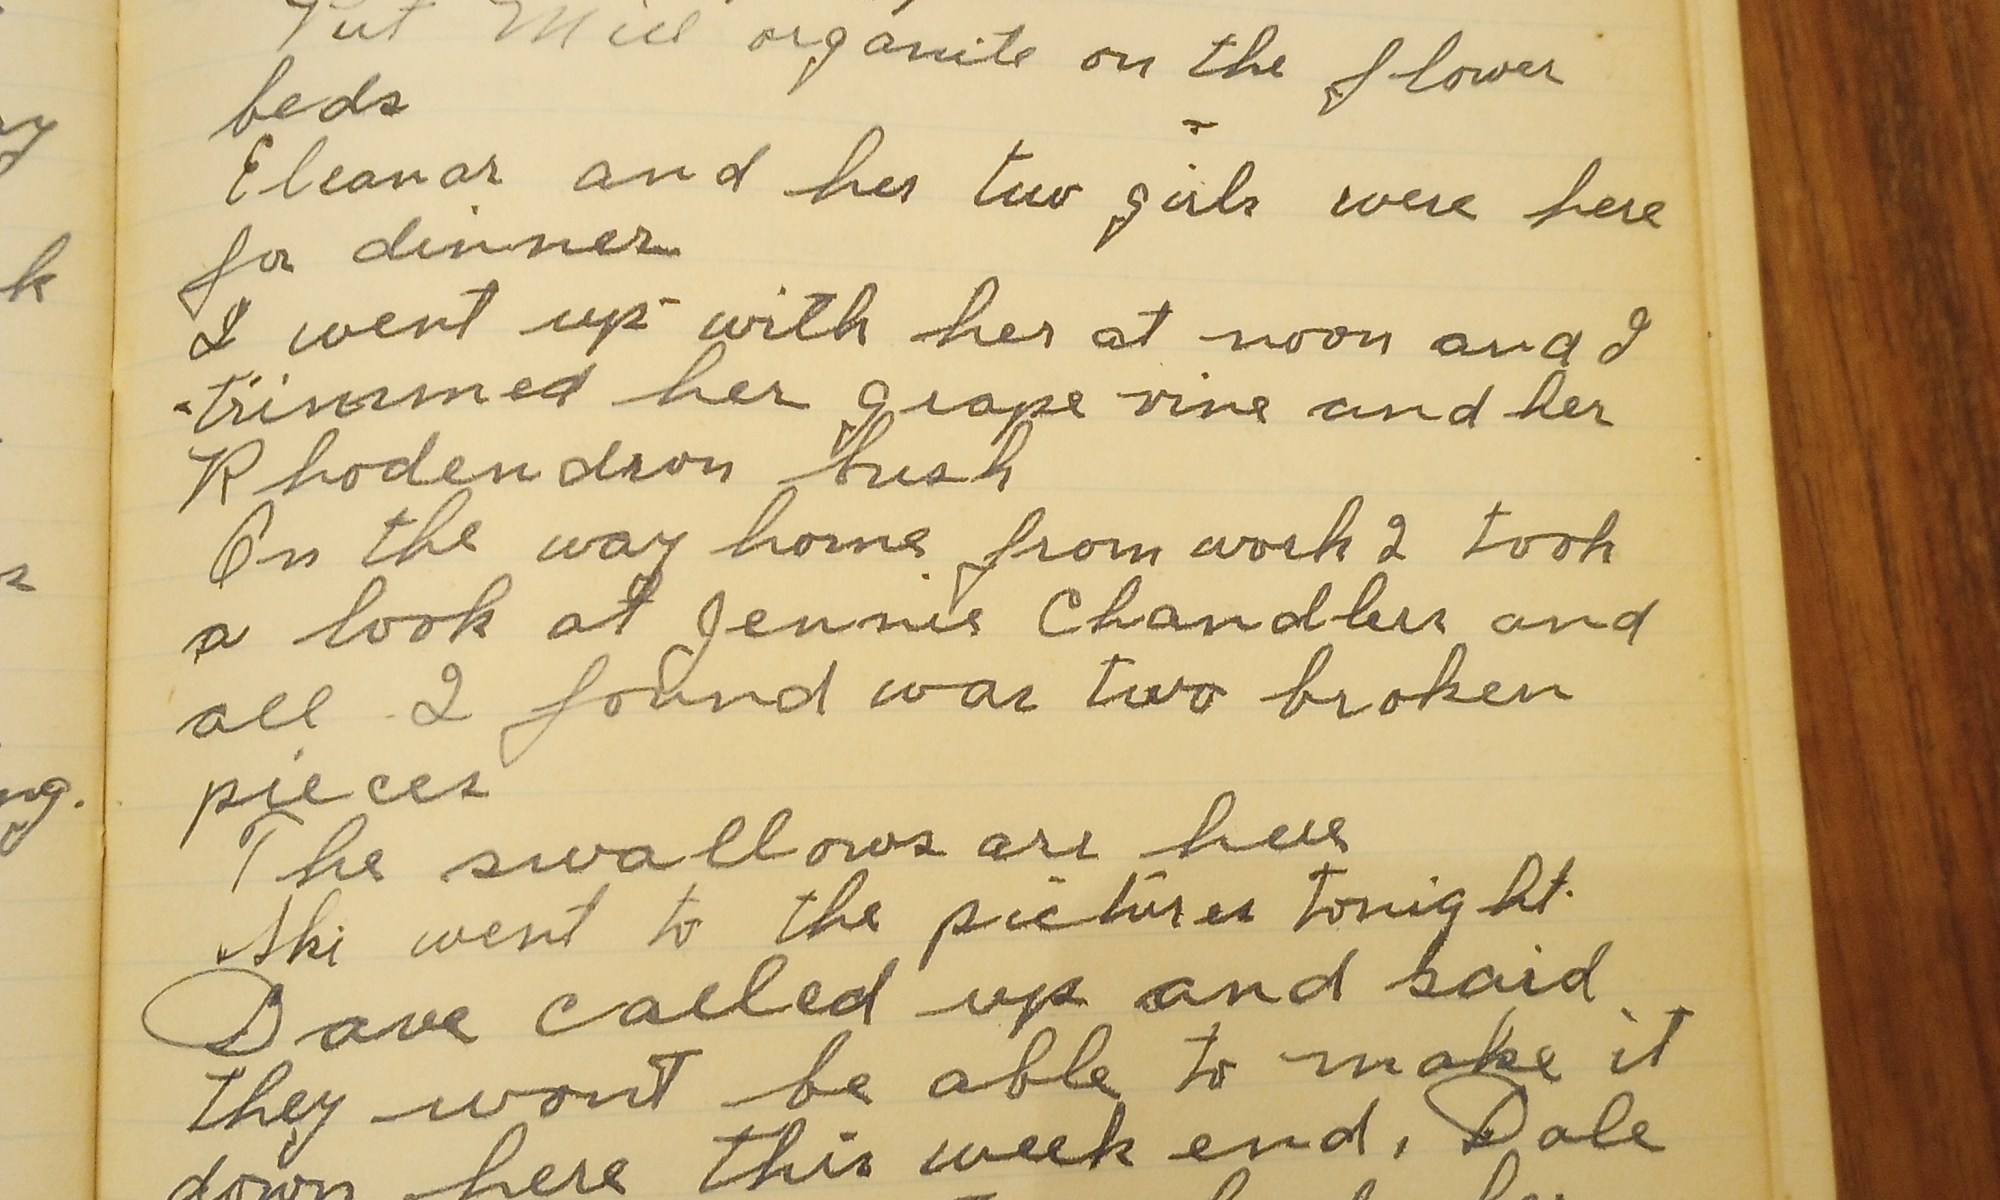 Put Mill organite on the flower
beds
Eleanor and her two girls were here
for dinner
I went up with her at noon and I
trimmed her grape vine and her
Rhodendron bush
On the way home from work I took
a look at Jennie Chandlers and
all I found was two broken
pieces
The swallows are here
Ski went to the pictures tonight.
Dave called up and said
they wont be able to make it
down here this week end. Dale